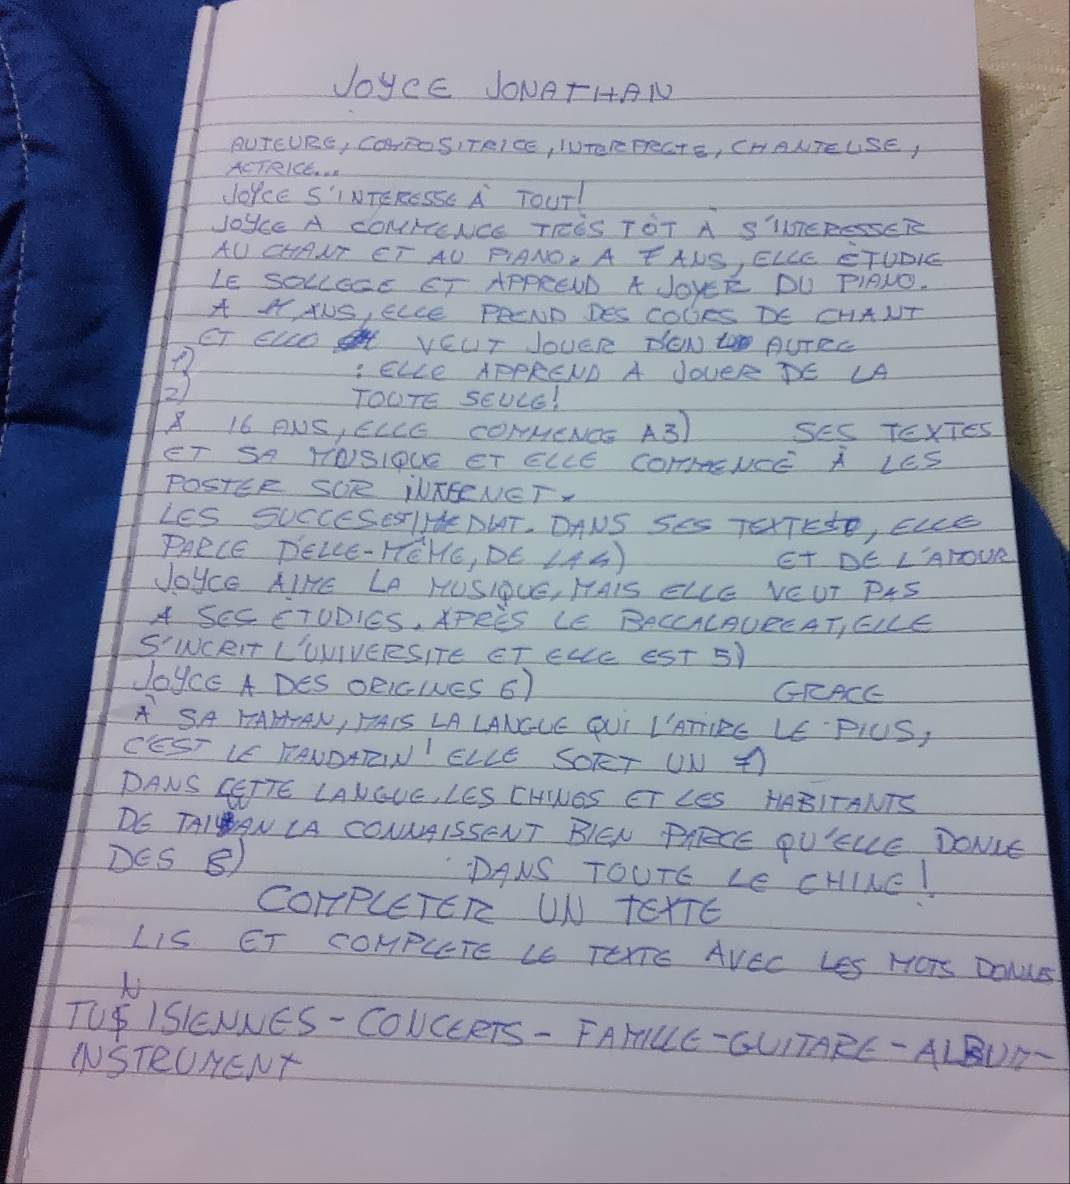 JOYCE JONATHAN
AUTEURE, COMPOSITRICE, INTERPRETE, CHANTEUSE,
ACTRICE...
JOYCE S'INTERESSE À TOUT!
JOYCE A COMMENCE TRÈS TÔT À S'INTERESSER
AU CHANT ET AU PIANO. A 7 ANS, ELLE ÉTUDIE
LE SOLLEGE ET APPREND A JOYER DU PIANO.
A ANS, ELLE PREND DES COURS DE CHANT
ET ELLE VEUT JOUER D'EN AUTRE
1) : ELLE APPREND A JOUER DE LA
2) TOUTE SEULE!
À 16 ANS, ELLE COMMENCE A3) SES TEXTES
ET SA MUSIQUE ET ELLE COMMENCE À LES
POSTER SUR INTERNET.
LES SUCCES EST IMEDIAT. DANS SES TEXTES, ELLE
PARLE D'ELLE-MÊME, DE LA4) ET DE L'AMOUR
JOYCE AIME LA MUSIQUE, MAIS ELLE VEUT PAS
A SES ETUDIES. APRÈS LE BACCALAUREAT, ELLE
S'INCRIT L'UNIVERSITE ET ELLE EST 5)
JOYCE A DES ORIGINES 6) GRACE
À SA MAMAN, MAIS LA LANGUE QUI L'ATTIRE LE PLUS,
C'EST LE MANDARIN! ELLE SORT UN 7)
DANS CETTE LANGUE. LES CHINOS ET LES HABITANTS
DE TAIWAN LA CONNAISSENT BIEN PARCE QU'ELLE DONNE
DES 8) DANS TOUTE LE CHINE!
COMPLETER UN TEXTE
LIS ET COMPLETE LE TEXTE AVEC LES MOTS DONNES
TUNISIENNES - CONCERTS - FAMILLE - GUITARE - ALBUM -
INSTRUMENT